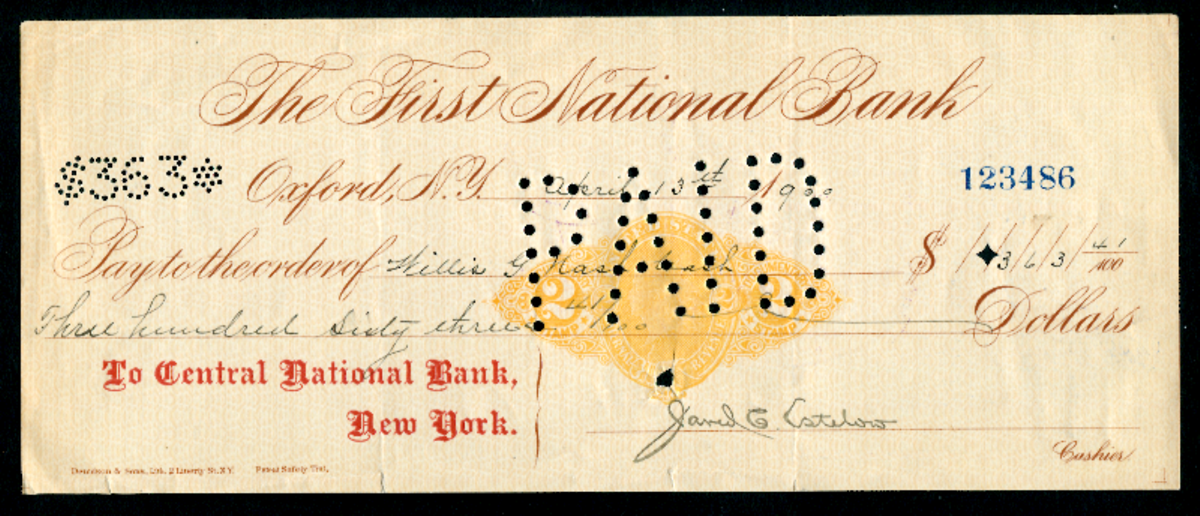 The First National Bank
$363* Oxford, N.Y. April 13th 1900 123486
PAID
Pay to the order of Willis G Nash Cash $363 41/100
Three hundred Sixty three 41/100 Dollars
2 STAMP 2 STAMP
To Central National Bank,
New York.
Jared C Estelow
Cashier
Dennison & Sons, Lith. 2 Liberty St. N.Y. Patent Safety Tint.